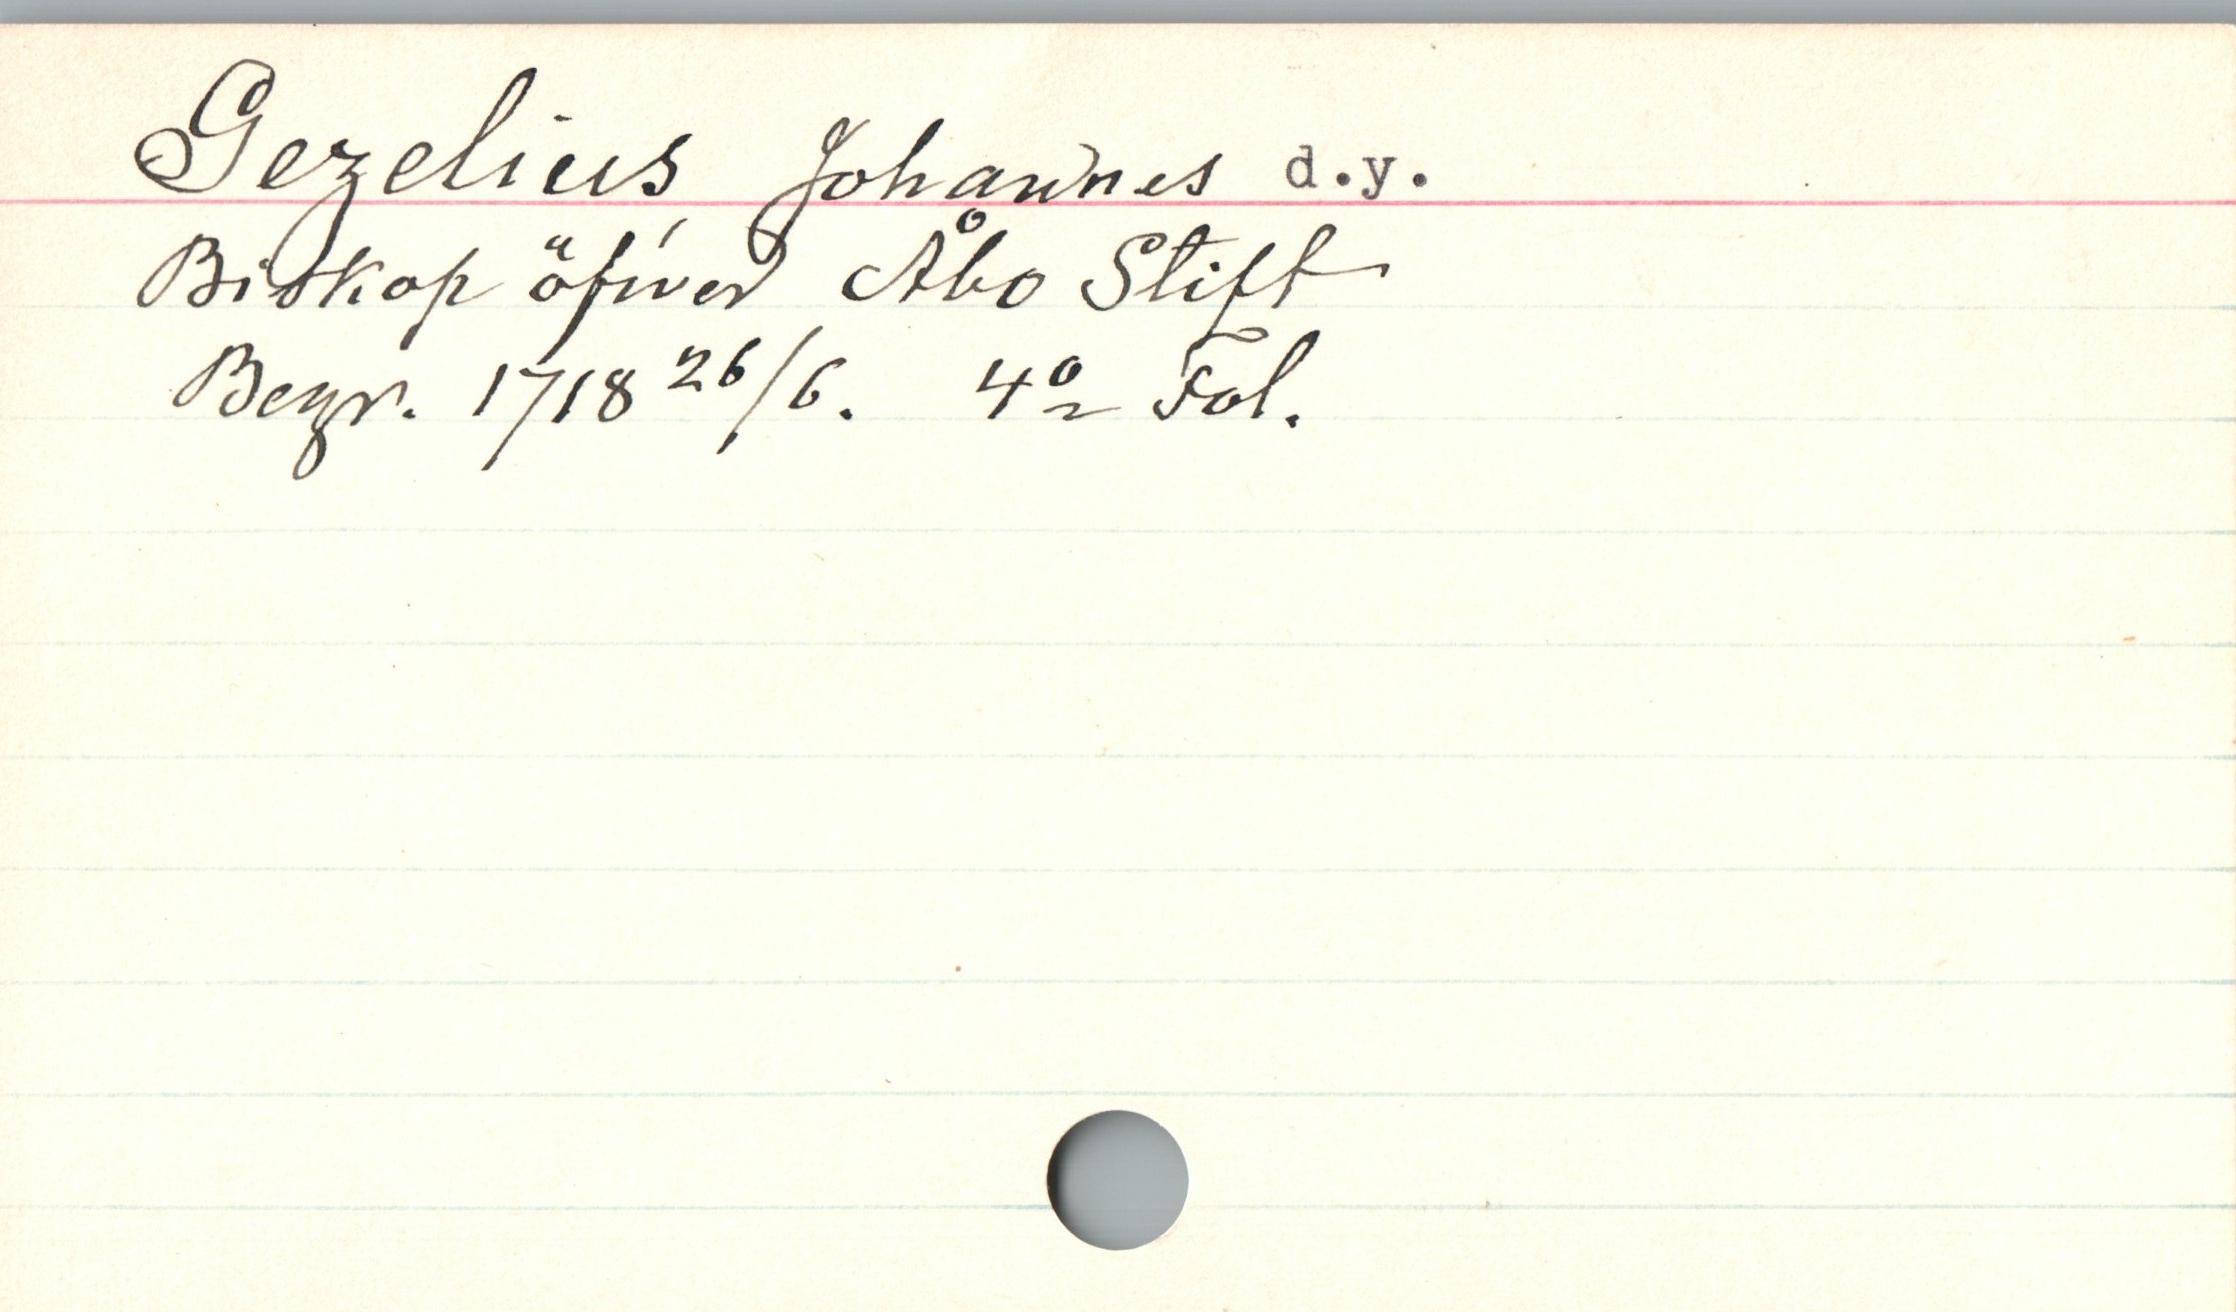 Gezelius, Johannes d.y.
Biskop öfwer Åbo Stift
Begr. 1718 26/6. 4o Fol.